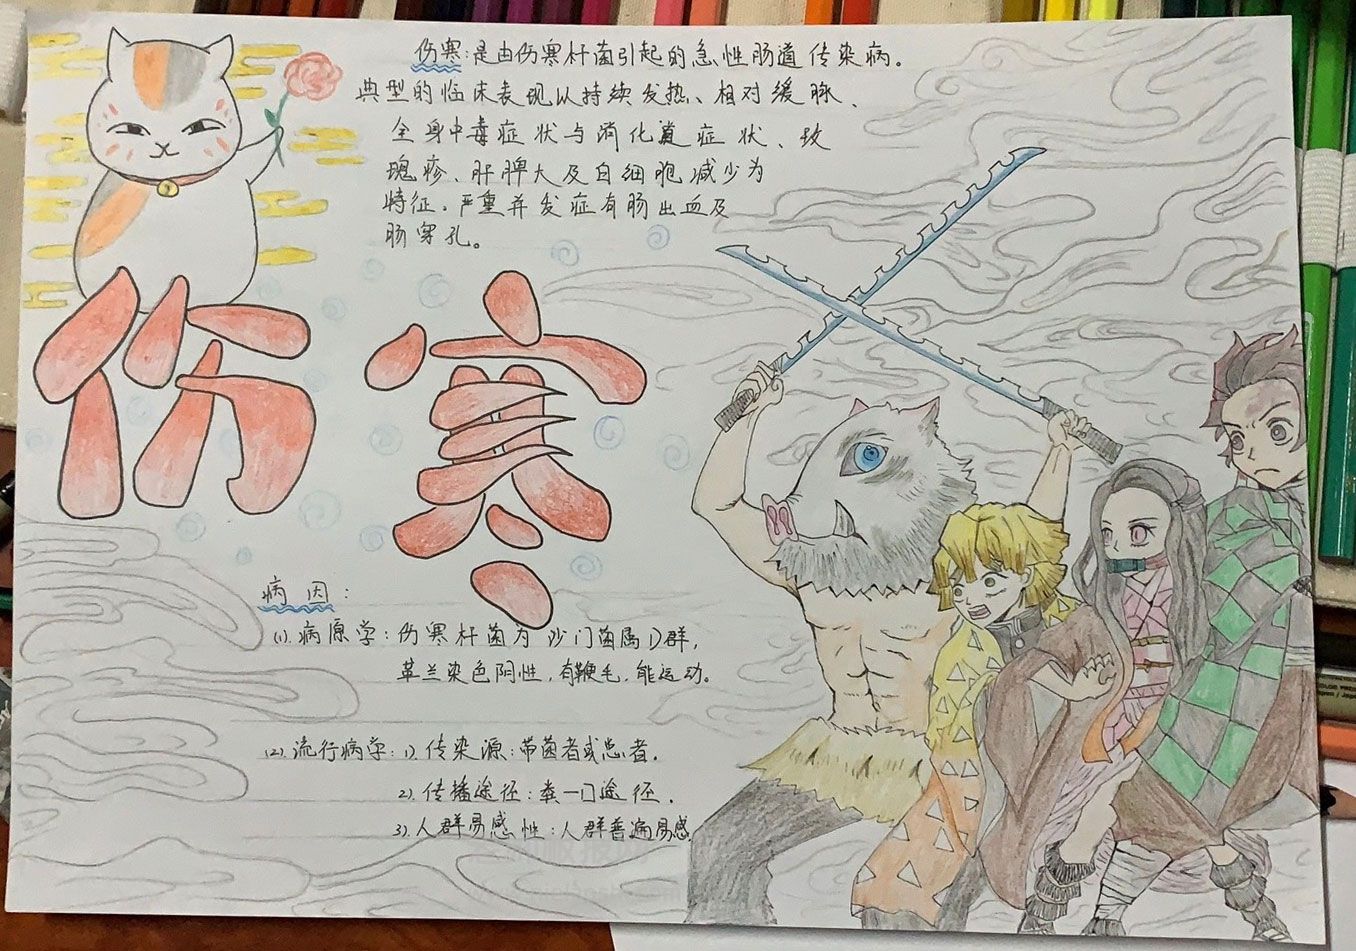 伤寒:是由伤寒杆菌引起的急性肠道传染病。
典型的临床表现以持续发热、相对缓脉、
全身中毒症状与消化道症状、玫
瑰疹、肝脾大及白细胞减少为
特征。严重并发症有肠出血及
肠穿孔。
伤寒
病因:
(1).病原学:伤寒杆菌为沙门菌属D群,
革兰染色阴性,有鞭毛,能运动。
(2).流行病学:1).传染源:带菌者或患者.
2).传播途径:粪一口途径.
3).人群易感性:人群普遍易感